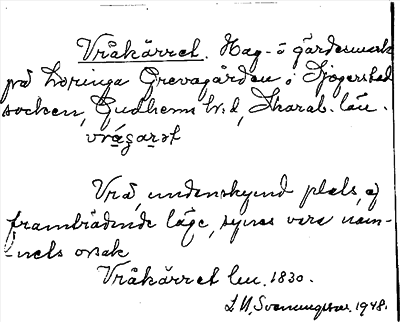 Vråkärret. Hag- o gärdesmark
på Loringa Grevagården i Sjogerstad
socken, Gudhems hd, Skarab. län.
Vrå, undanskymd plats, ej
frambrädande läge, synes vara nam-
-nets orsak
Vråkärret len. 1830.
L. N. Svenungsson. 1948.